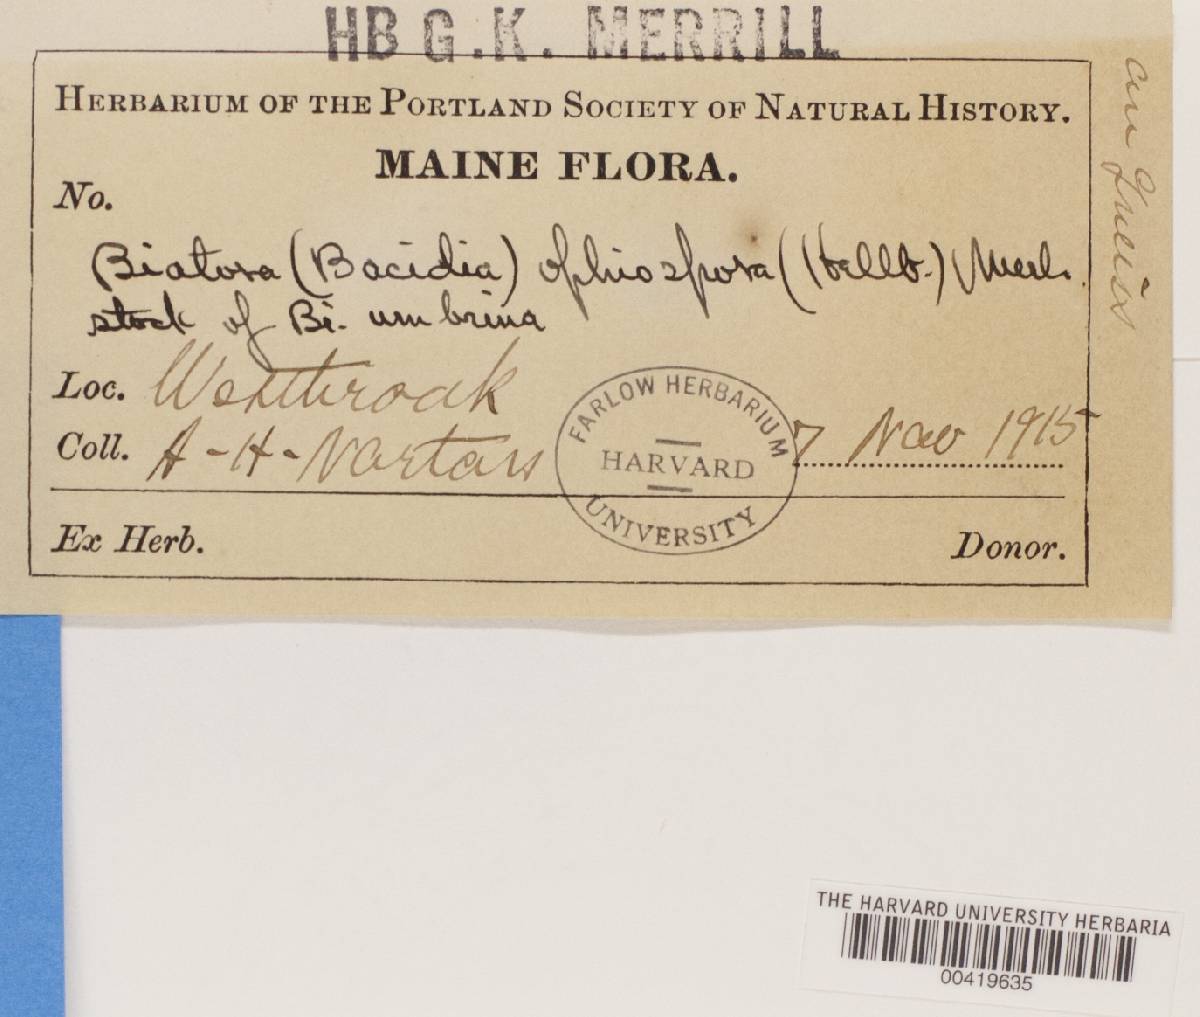 HB G.K. MERRILL
HERBARIUM OF THE PORTLAND SOCIETY OF NATURAL HISTORY.
MAINE FLORA.
No.
Biatora (Bacidia) ophiospora (Hellb.) Merl.
stock of Bi. umbrina
Loc. Westbrook
Coll. A-H-Norton 7 Nov 1915
FARLOW HERBARIUM
HARVARD
UNIVERSITY
Ex Herb. Donor.
on
THE HARVARD UNIVERSITY HERBARIA
00419635